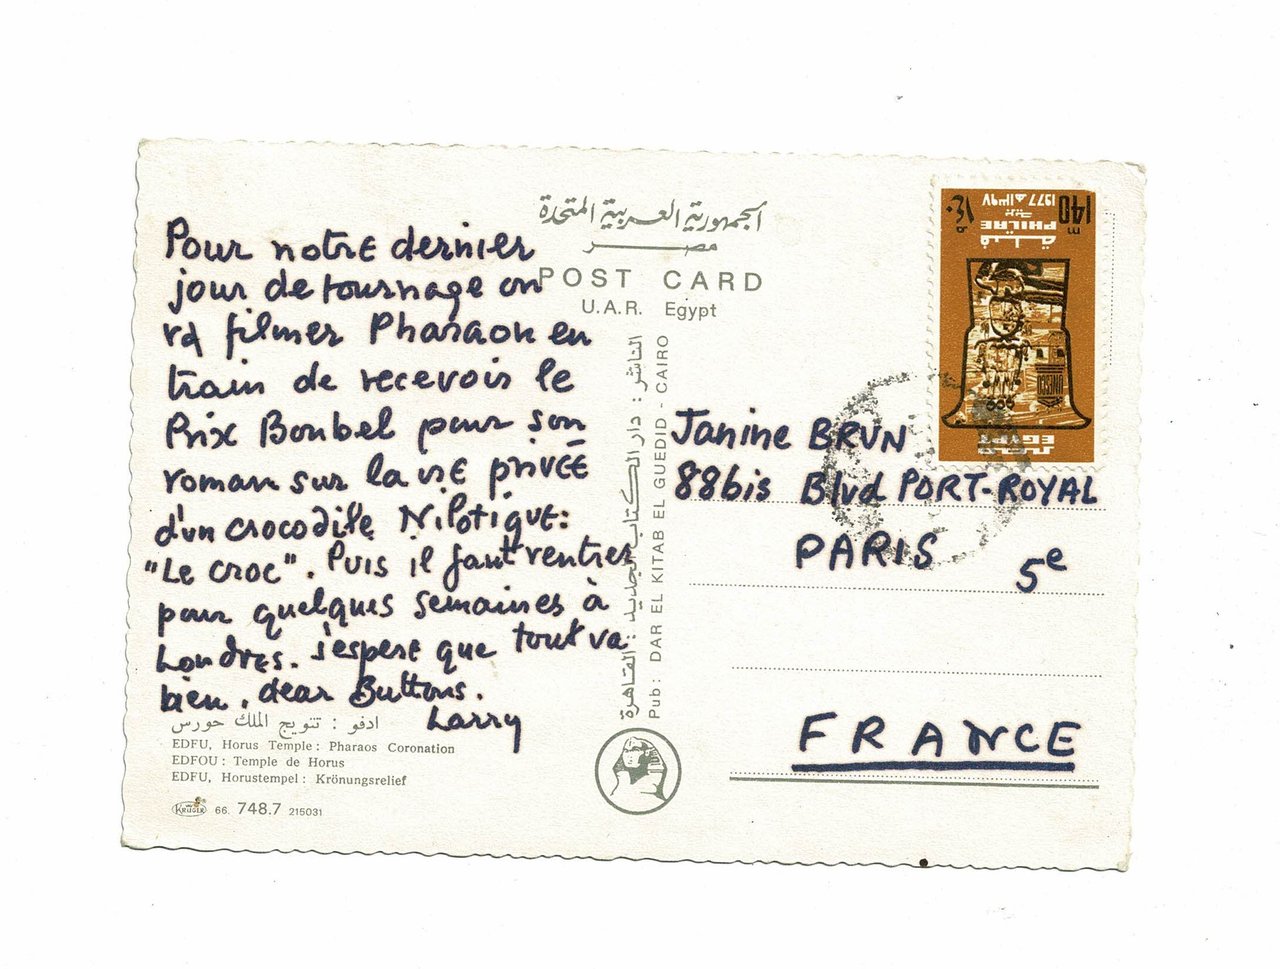 Pour notre dernier
jour de tournage on
va filmer Pharaon en
train de recevoir le
Prix Bonbel pour son
roman sur la vie privée
d'un crocodile Nilotique:
"Le croc". Puis il faut rentrer
pour quelques semaines à
Londres. J'espere que tout va
bien, dear Buttons.
Larry
ادفو : تتويج الملك حورس
EDFU, Horus Temple: Pharaos Coronation
EDFOU: Temple de Horus
EDFU, Horustempel: Krönungsrelief
KRÜGER 66 748.7 215031
الجمهورية العربية المتحدة
مصر
POST CARD
U.A.R. Egypt
الناشر : دار الكتاب الجديد : القاهرة
Pub: DAR EL KITAB EL GUEDID - CAIRO
140 m ١٤٠ م
1977 ١٣٩٧ هـ
بريد
PHILAE فيلة
UNESCO
EGYPT مصر
Janine BRUN
88bis Blvd PORT-ROYAL
PARIS 5e
FRANCE